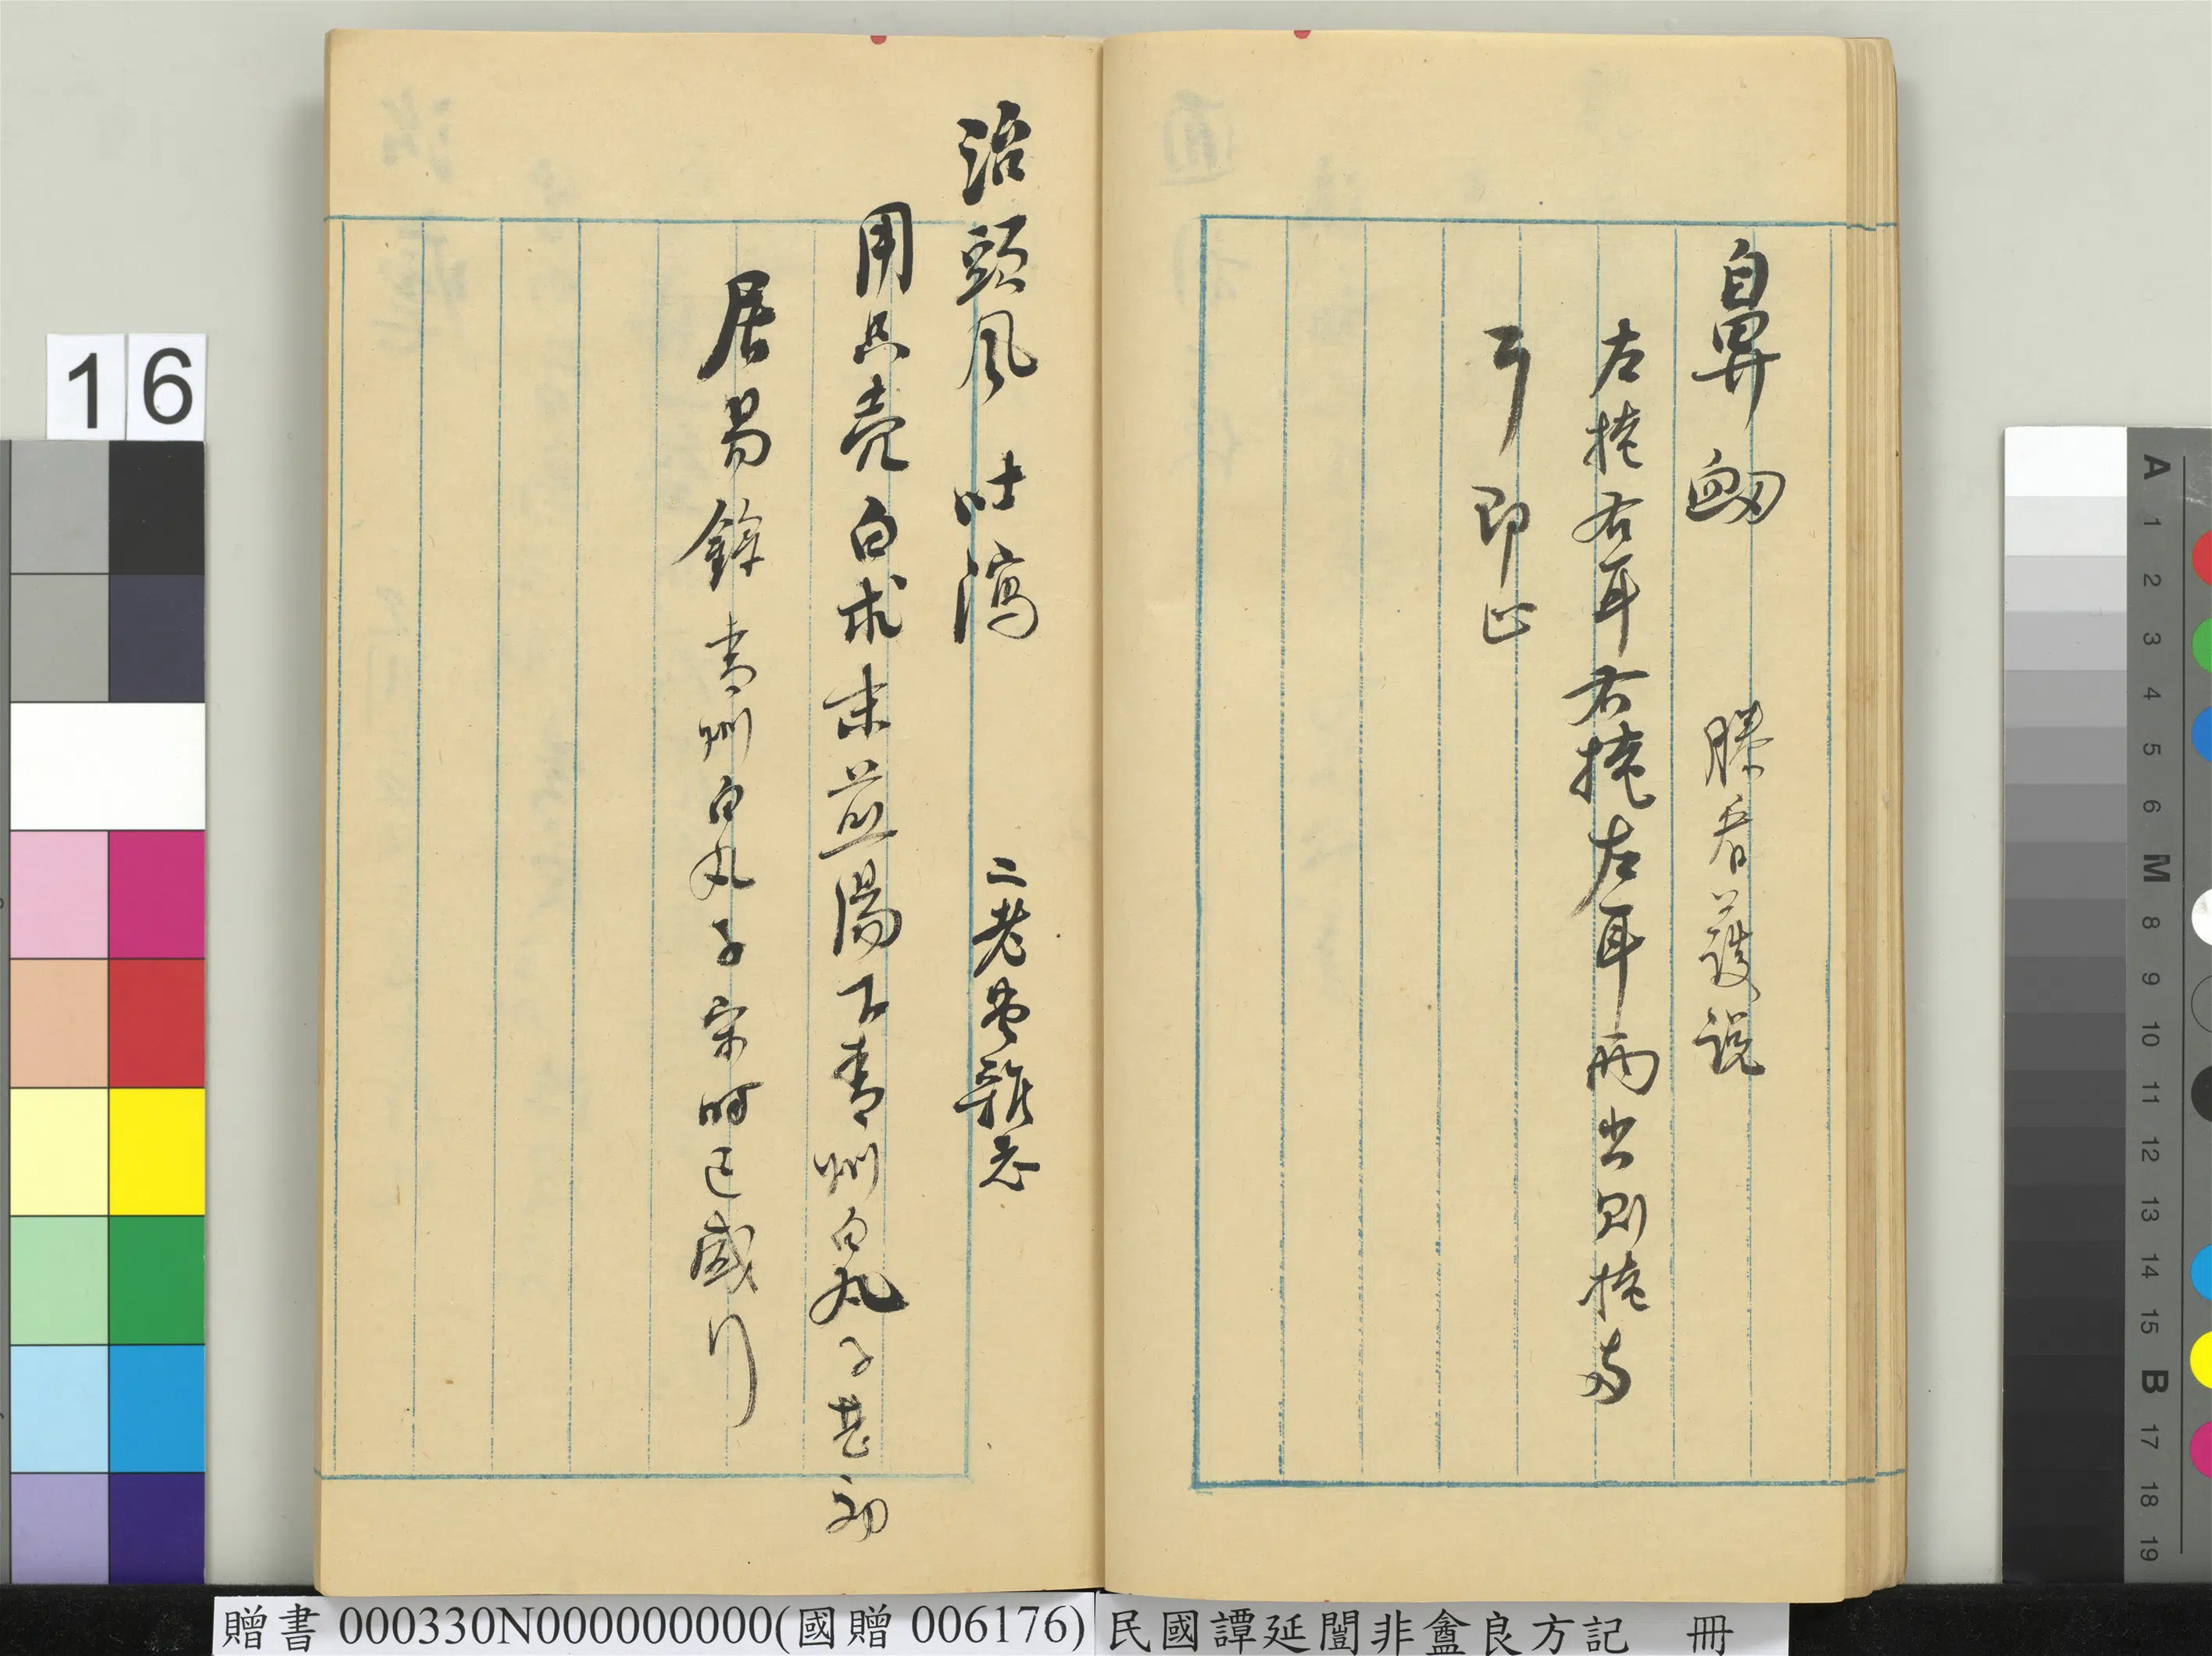 鼻衂　滕看護説
左掩右耳右掩左耳兩出則掩兩
耳即止
治頭風吐瀉　二老堂雜志
用只壳白朮末煎湯下青州白丸子甚効
居易錄青州白丸子宋時已盛行
16
贈書 000330N000000000(國贈 006176) 民國譚延闓非盦良方記 冊
A 1 2 3 4 5 6 M 8 9 10 11 12 13 14 15 B 17 18 19